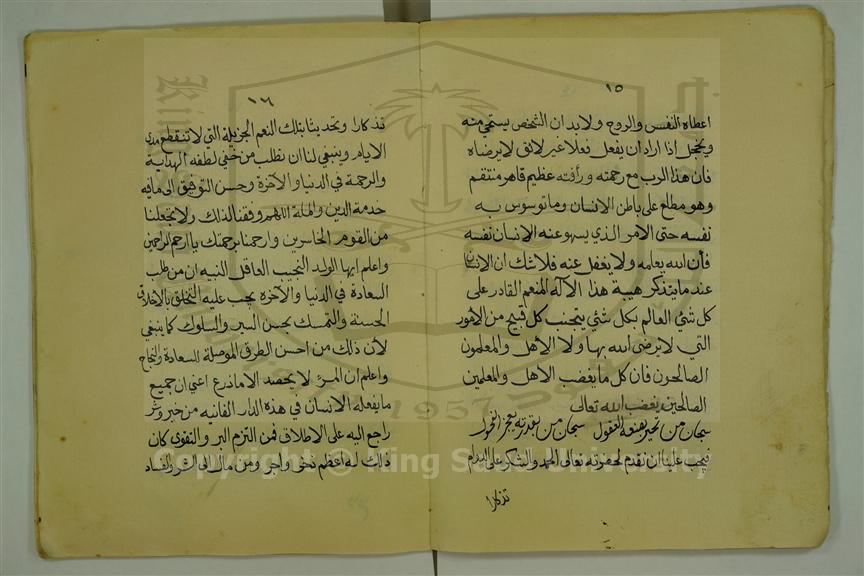 ١٥
اعطاه النفس والروح ولابد ان الشخص يستحي منه
ويخجل اذا اراد ان يفعل فعلا غير لائق لا يرضاه
فان هذا الرب مع رحمته ورأفته عظيم قاهر منتقم
وهو مطلع على باطن الانسان وما توسوس به
نفسه حتى الامر الذي يسهو عنه الانسان نفسه
فأن الله يعلمه ولا يغفل عنه فلا شك ان الانسان
عند ما يتذكر هيبة هذا الآله المنعم القادر على
كل شئ العالم بكل شئ يتجنب كل قبيح من الأمور
التي لا يرضى الله بها ولا الأهل والمعلمون
الصالحون فأن كل ما يغضب الاهل والمعلمين
الصالحين يغضب الله تعالى
سبحان من تحير بصنعه العقول سبحان من بقدرته يعجز الفحول
فيجب علينا ان نقدم لحضرته تعالى الحمد والشكر على الدوام
تذكارا
١٦
تذكارا وتحديثا بتلك النعم الجزيلة التي لا تنقطع مدى
الايام وينبغي لنا ان نطلب من خفي لطفه الهداية
والرحمة في الدنيا والآخرة وحسن التوفيق الى ما فيه
خدمة الدين والملة اللهم وفقنا لذلك ولا تجعلنا
من القوم الخاسرين وارحمنا برحمتك يا ارحم الراحمين
واعلم ايها الولد النجيب العاقل النبيه ان من طلب
السعادة في الدنيا والآخرة يجب عليه التخلق بالاخلاق
الحسنة والتمسك بحسن السير والسلوك كما ينبغي
لأن ذلك من احسن الطرق الموصلة للسعادة والنجاح
واعلم ان المرء لا يحصد الا ما زرع اعني ان جميع
ما يفعله الانسان في هذه الدار الفانيه من خير وشر
راجع اليه على الاطلاق فمن التزم البر والتقوى كان
ذلك له اعظم ذخر واجر ومن مال الى الشر والفساد
Copyright © King Saud University
1957